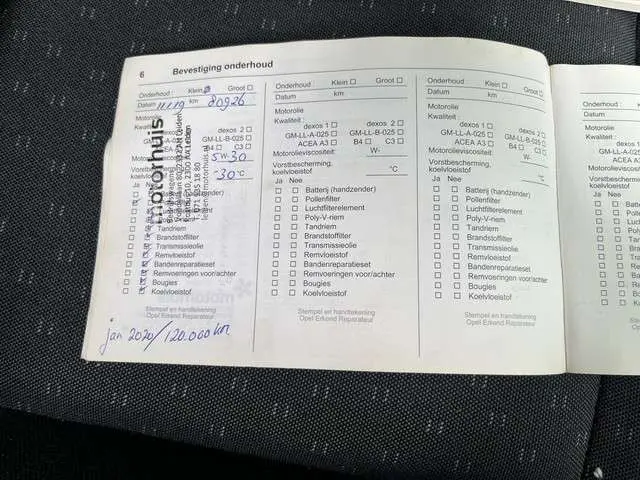 6 Bevestiging onderhoud
Onderhoud : Klein Groot
Datum 11 1 19 km 80926
Motorolie
Kwaliteit :
dexos 2
GM-LL-A-025 GM-LL-B-025
ACEA A3 B4 C3
Motorolieviscositeit: 5W-30
Vorstbescherming.
koelvloeistof -30°C
Ja Nee
Batterij (handzender)
Tandriem
Brandstoffilter
Transmissieolie
Remvloeistof
Bandenreparatieset
Remvoeringen voor/achter
Bougies
Koelvloeistof
motorhuis
Stempel en handtekening
Opel Erkend Reparateur
jan 2020/120.000 km
Onderhoud : Klein Groot
Datum km
Motorolie
Kwaliteit :
dexos 1 dexos 2
GM-LL-A-025 GM-LL-B-025
ACEA A3 B4 C3
Motorolieviscositeit: W-
Vorstbescherming.
koelvloeistof °C
Ja Nee
Batterij (handzender)
Pollenfilter
Luchtfilterelement
Poly-V-riem
Tandriem
Brandstoffilter
Transmissieolie
Remvloeistof
Bandenreparatieset
Remvoeringen voor/achter
Bougies
Koelvloeistof
Stempel en handtekening
Opel Erkend Reparateur
Onderhoud : Klein Groot
Datum km
Motorolie
Kwaliteit :
dexos 1 dexos 2
GM-LL-A-025 GM-LL-B-025
ACEA A3 B4 C3
Motorolieviscositeit: W-
Vorstbescherming.
koelvloeistof °C
Ja Nee
Batterij (handzender)
Pollenfilter
Luchtfilterelement
Poly-V-riem
Tandriem
Brandstoffilter
Transmissieolie
Remvloeistof
Bandenreparatieset
Remvoeringen voor/achter
Bougies
Koelvloeistof
Stempel en handtekening
Opel Erkend Reparateur
Onderhoud :
Datum
Motorolie
Kwaliteit :
Ja Nee